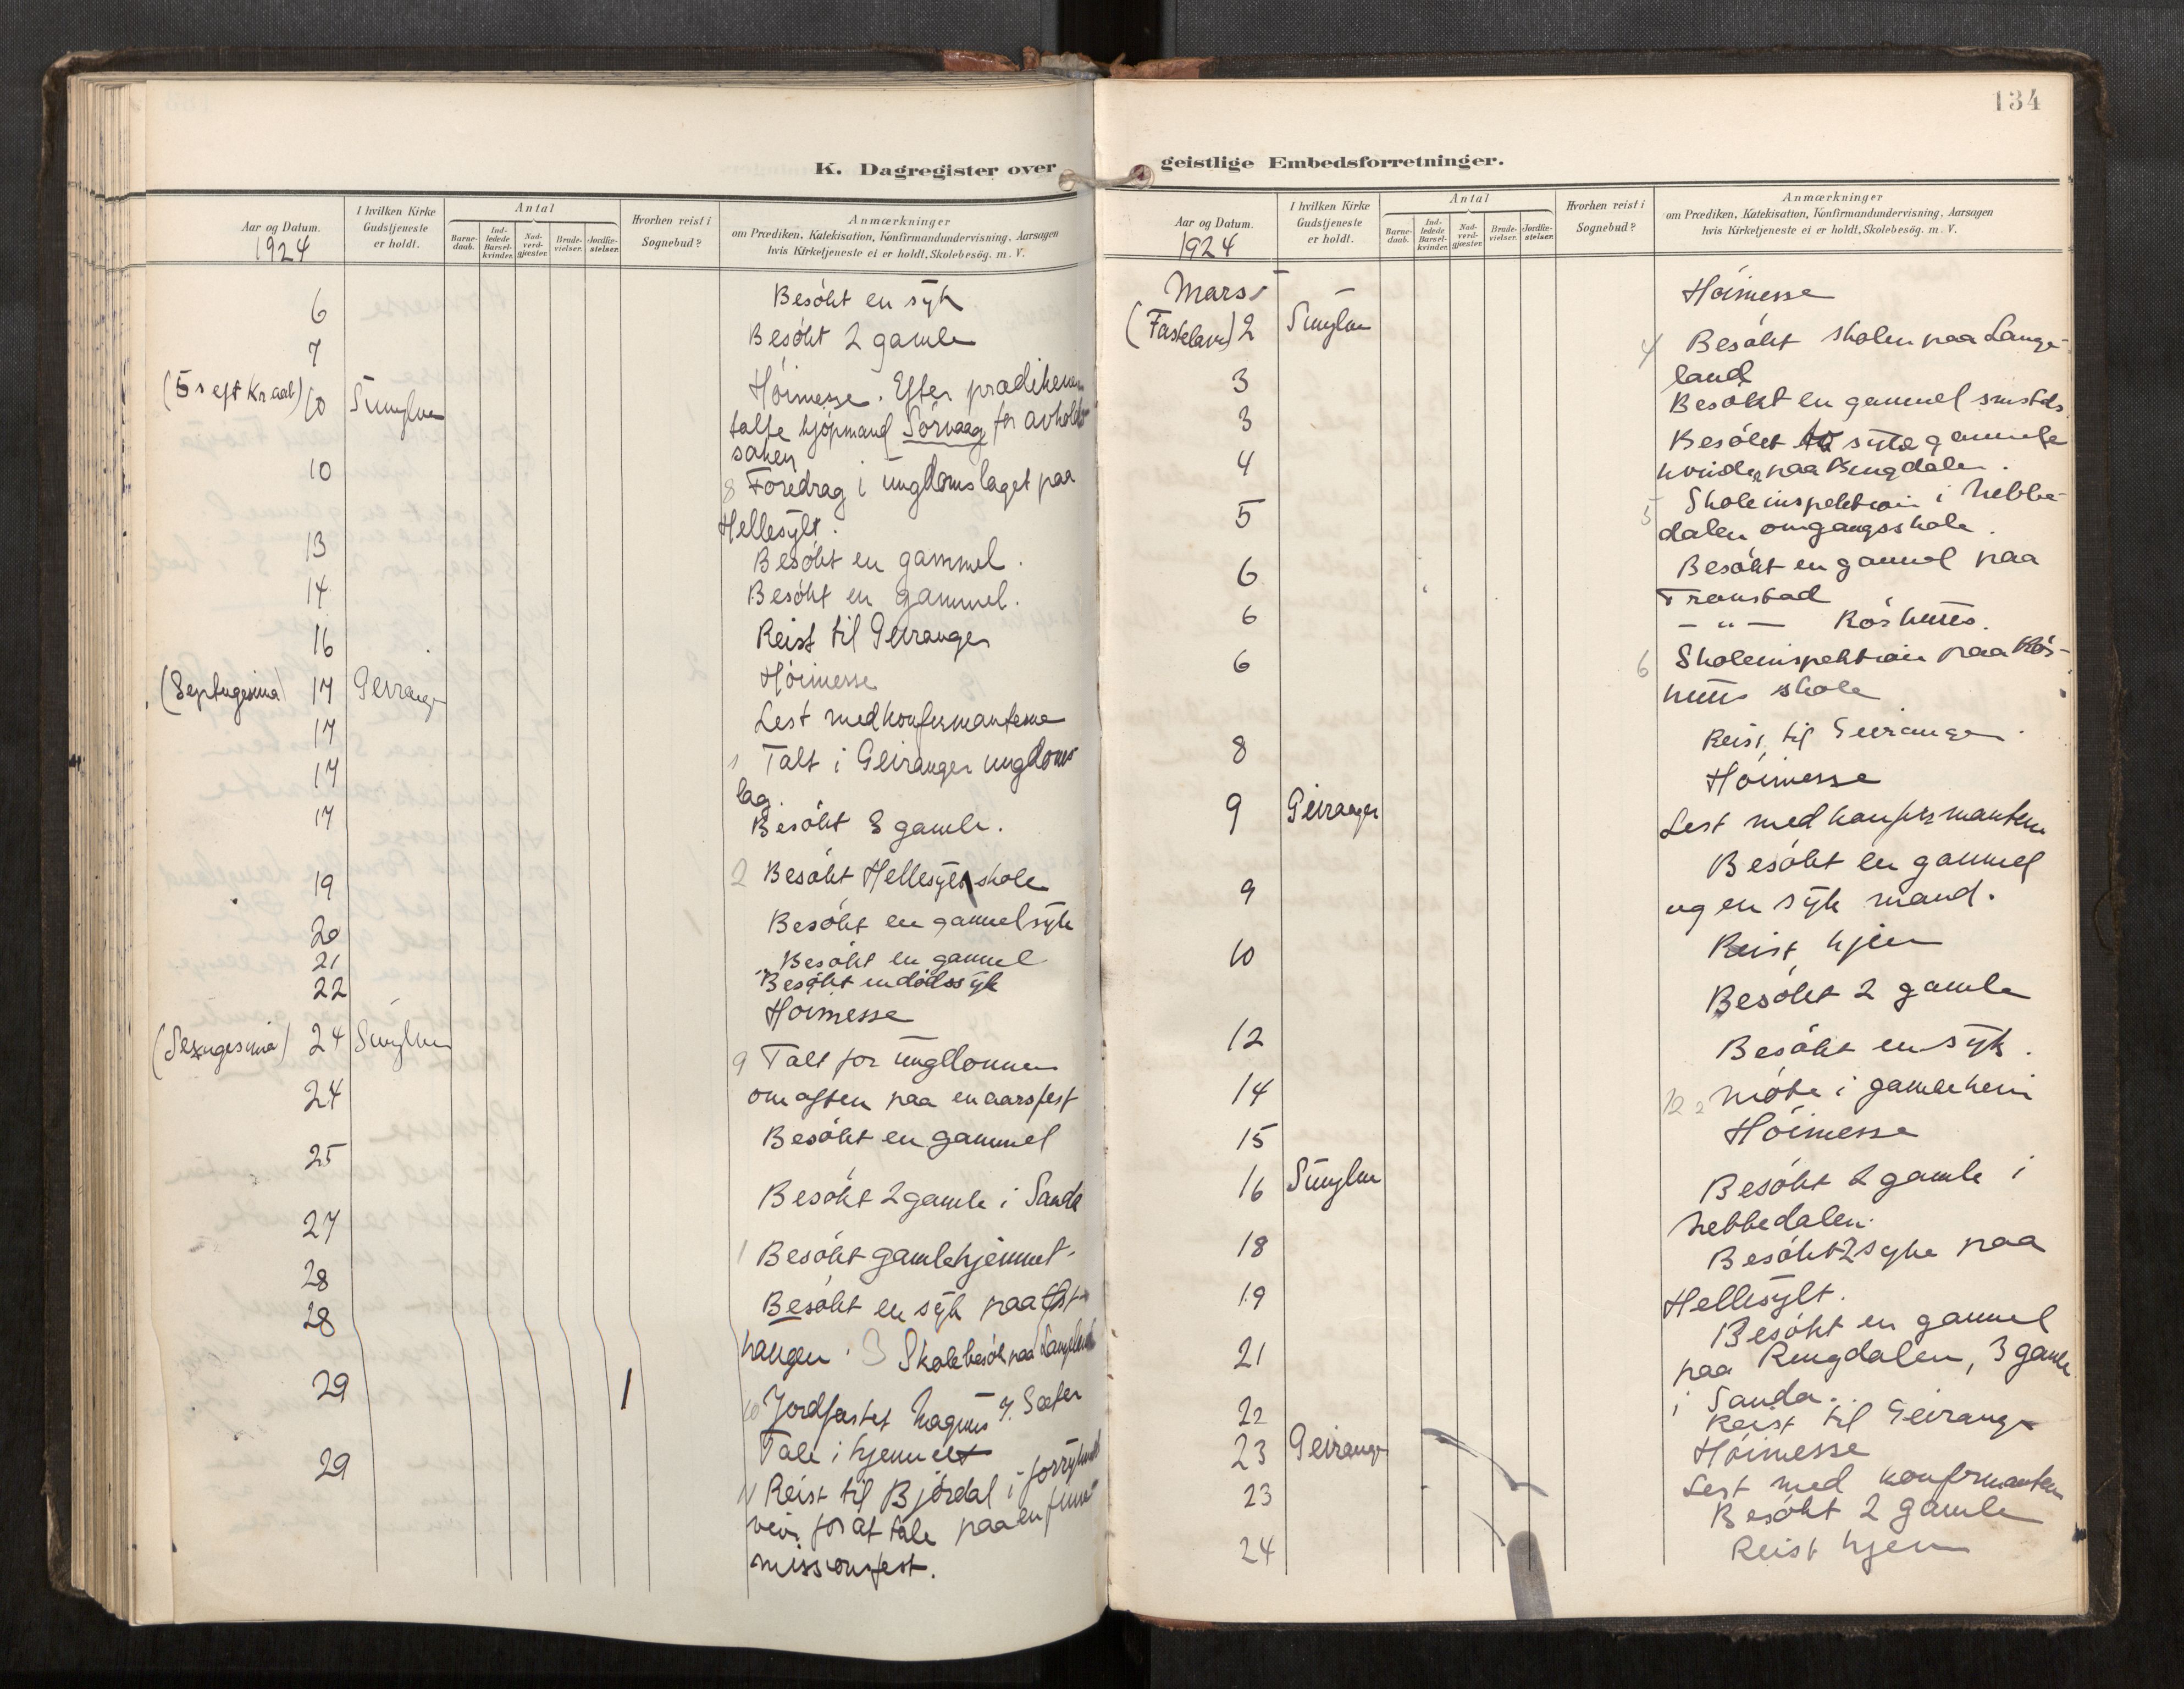 134
K. Dagregister over
Aar og Datum.
1924
I hvilken Kirke
Gudstjeneste
er holdt.
Antal
Barne-
daab.
Ind-
ledede
Barsel-
kvinder.
Nad-
verd-
gjæster.
Brude-
vielser.
Jordfæ-
stelser.
Hvorhen reist i
Sognebud?
Anmærkninger
om Prædiken, Katekisation, Konfirmandundervisning, Aarsagen
hvis Kirketjeneste ei er holdt, Skolebesög. m. V.
6 Besökt en syk
7 Besökt 2 gamle
(5 s eft Kr aab) 10 Sunylven Höimesse. Efter prædikenen
talte kjöpmand Sörvaag for avholds
saken
10 8 Foredrag i ungdomslaget paa
Hellesylt.
13 Besökt en gammel.
14 Besökt en gammel.
16 Reist til Geiranger
(Septuagesima) 17 Geiranger Höimesse
17 Lest med konfirmanterne
17 1 Talt i Geiranger ungdoms
lag.
17 Besökt 3 gamle.
19 2 Besökt Hellesylt skole
20 Besökt en gammel syk
21 Besökt en gammel
22 Besökt en dödssyk
(Sexagesima) 24 Sunylven Höimesse
24 9 Talt for ungdommen
om aften paa en aarsfest
25 Besökt en gammel
27 Besökt 2 gamle i Sanda
28 1 Besökt gamlehjemmet.
28 Besökt en syk paa
haugen. 3 Skolebesök paa Langeland
29 1 10 Jordfæstet Magnus J. Sæter
Tale i hjemmet
29 11 Reist til Björdal i forrykende
veir for at tale paa en finne
missionsfest.
geistlige Embedsforretninger.
Aar og Datum.
1924
I hvilken Kirke
Gudstjeneste
er holdt.
Antal
Barne-
daab.
Ind-
ledede
Barsel-
kvinder.
Nad-
verd-
gjæster.
Brude-
vielser.
Jordfæ-
stelser.
Hvorhen reist i
Sognebud?
Anmærkninger
om Prædiken, Katekisation, Konfirmandundervisning, Aarsagen
hvis Kirketjeneste ei er holdt, Skolebesög. m. V.
Mars
(Fastelavn) 2 Sunylven Höimesse
3 4 Besökt skolen paa Lange-
land
3 Besökt en gammel smstds
4 Besökt to syke gammle
kvinder paa Ringdalen.
5 5 Skoleinspektion i Nebbe-
dalen omgangsskole.
6 Besökt en gammel paa
Tronstad
6 - " - Röshus.
6 6 Skoleinspektion paa Rös-
hus skole
8 Reist til Geiranger.
9 Geiranger Höimesse
Lest med konfirmanterne
9 Besökt en gammel
og en syk mand.
10 Reist hjem
12 Besökt 2 gamle
14 Besökt en syk.
15 12 2 Möte i gamleheim
16 Sunylven Höimesse
18 Besökt 2 gamle i
Nebbedalen.
19 Besökt 2 syke paa
Hellesylt.
21 Besökt en gammel
paa Ringdalen, 3 gamle
i Sanda.
22 Reist til Geiranger
23 Geiranger Höimesse
Lest med konfirmanterne
23 Besökt 2 gamle
24 Reist hjem